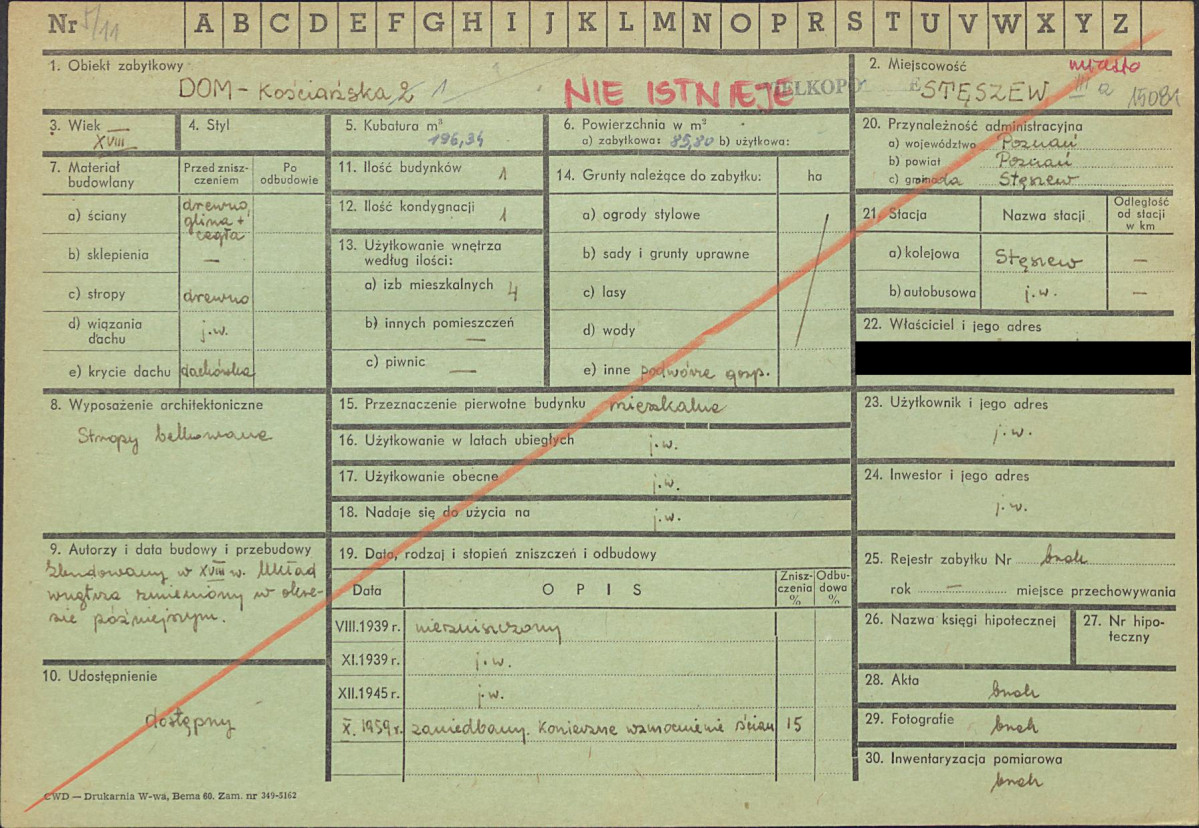 Nr 5/11 A B C D E F G H I J K L M N O P R S T U V W X Y Z
1. Obiekt zabytkowy
DOM - Kościańska 2 1
NIE ISTNIEJE
2. Miejscowość
miasto
STĘSZEW III a 15081
3. Wiek
XVIII
4. Styl
5. Kubatura m³
196,34
6. Powierzchnia w m²
a) zabytkowa: 85,80 b) użytkowa:
20. Przynależność administracyjna
a) województwo Poznań
b) powiat Poznań
c) gromada Stęszew
7. Materiał budowlany
Przed zniszczeniem
Po odbudowie
a) ściany drewno, glina + cegła
b) sklepienia —
c) stropy drewno
d) wiązania dachu j.w.
e) krycie dachu dachówka
11. Ilość budynków 1
12. Ilość kondygnacji 1
13. Użytkowanie wnętrza
według ilości:
a) izb mieszkalnych 4
b) innych pomieszczeń —
c) piwnic —
14. Grunty należące do zabytku: ha
a) ogrody stylowe
b) sady i grunty uprawne
c) lasy
d) wody
e) inne podwórze gosp.
21. Stacja
Nazwa stacji
Odległość od stacji w km
a) kolejowa Stęszew —
b) autobusowa j.w. —
22. Właściciel i jego adres
8. Wyposażenie architektoniczne
Stropy belkowane
15. Przeznaczenie pierwotne budynku mieszkalne
16. Użytkowanie w latach ubiegłych j.w.
17. Użytkowanie obecne j.w.
18. Nadaje się do użycia na j.w.
23. Użytkownik i jego adres
j.w.
24. Inwestor i jego adres
j.w.
9. Autorzy i data budowy i przebudowy
Zbudowany w XVIII w. Układ
wnętrza zmieniony w okre-
sie późniejszym.
10. Udostępnienie
dostępny
19. Data, rodzaj i stopień zniszczeń i odbudowy
Data OPIS Zniszczenia % Odbudowa %
VIII.1939 r. niezniszczony
XI.1939 r. j.w.
XII.1945 r. j.w.
X. 1959 r. zaniedbany. Konieczne wzmocnienie ścian 15
25. Rejestr zabytku Nr brak
rok — miejsce przechowywania
26. Nazwa księgi hipotecznej
27. Nr hipoteczny
28. Akta
brak
29. Fotografie
brak
30. Inwentaryzacja pomiarowa
brak
CWD — Drukarnia W-wa, Bema 60. Zam. nr 349-5162